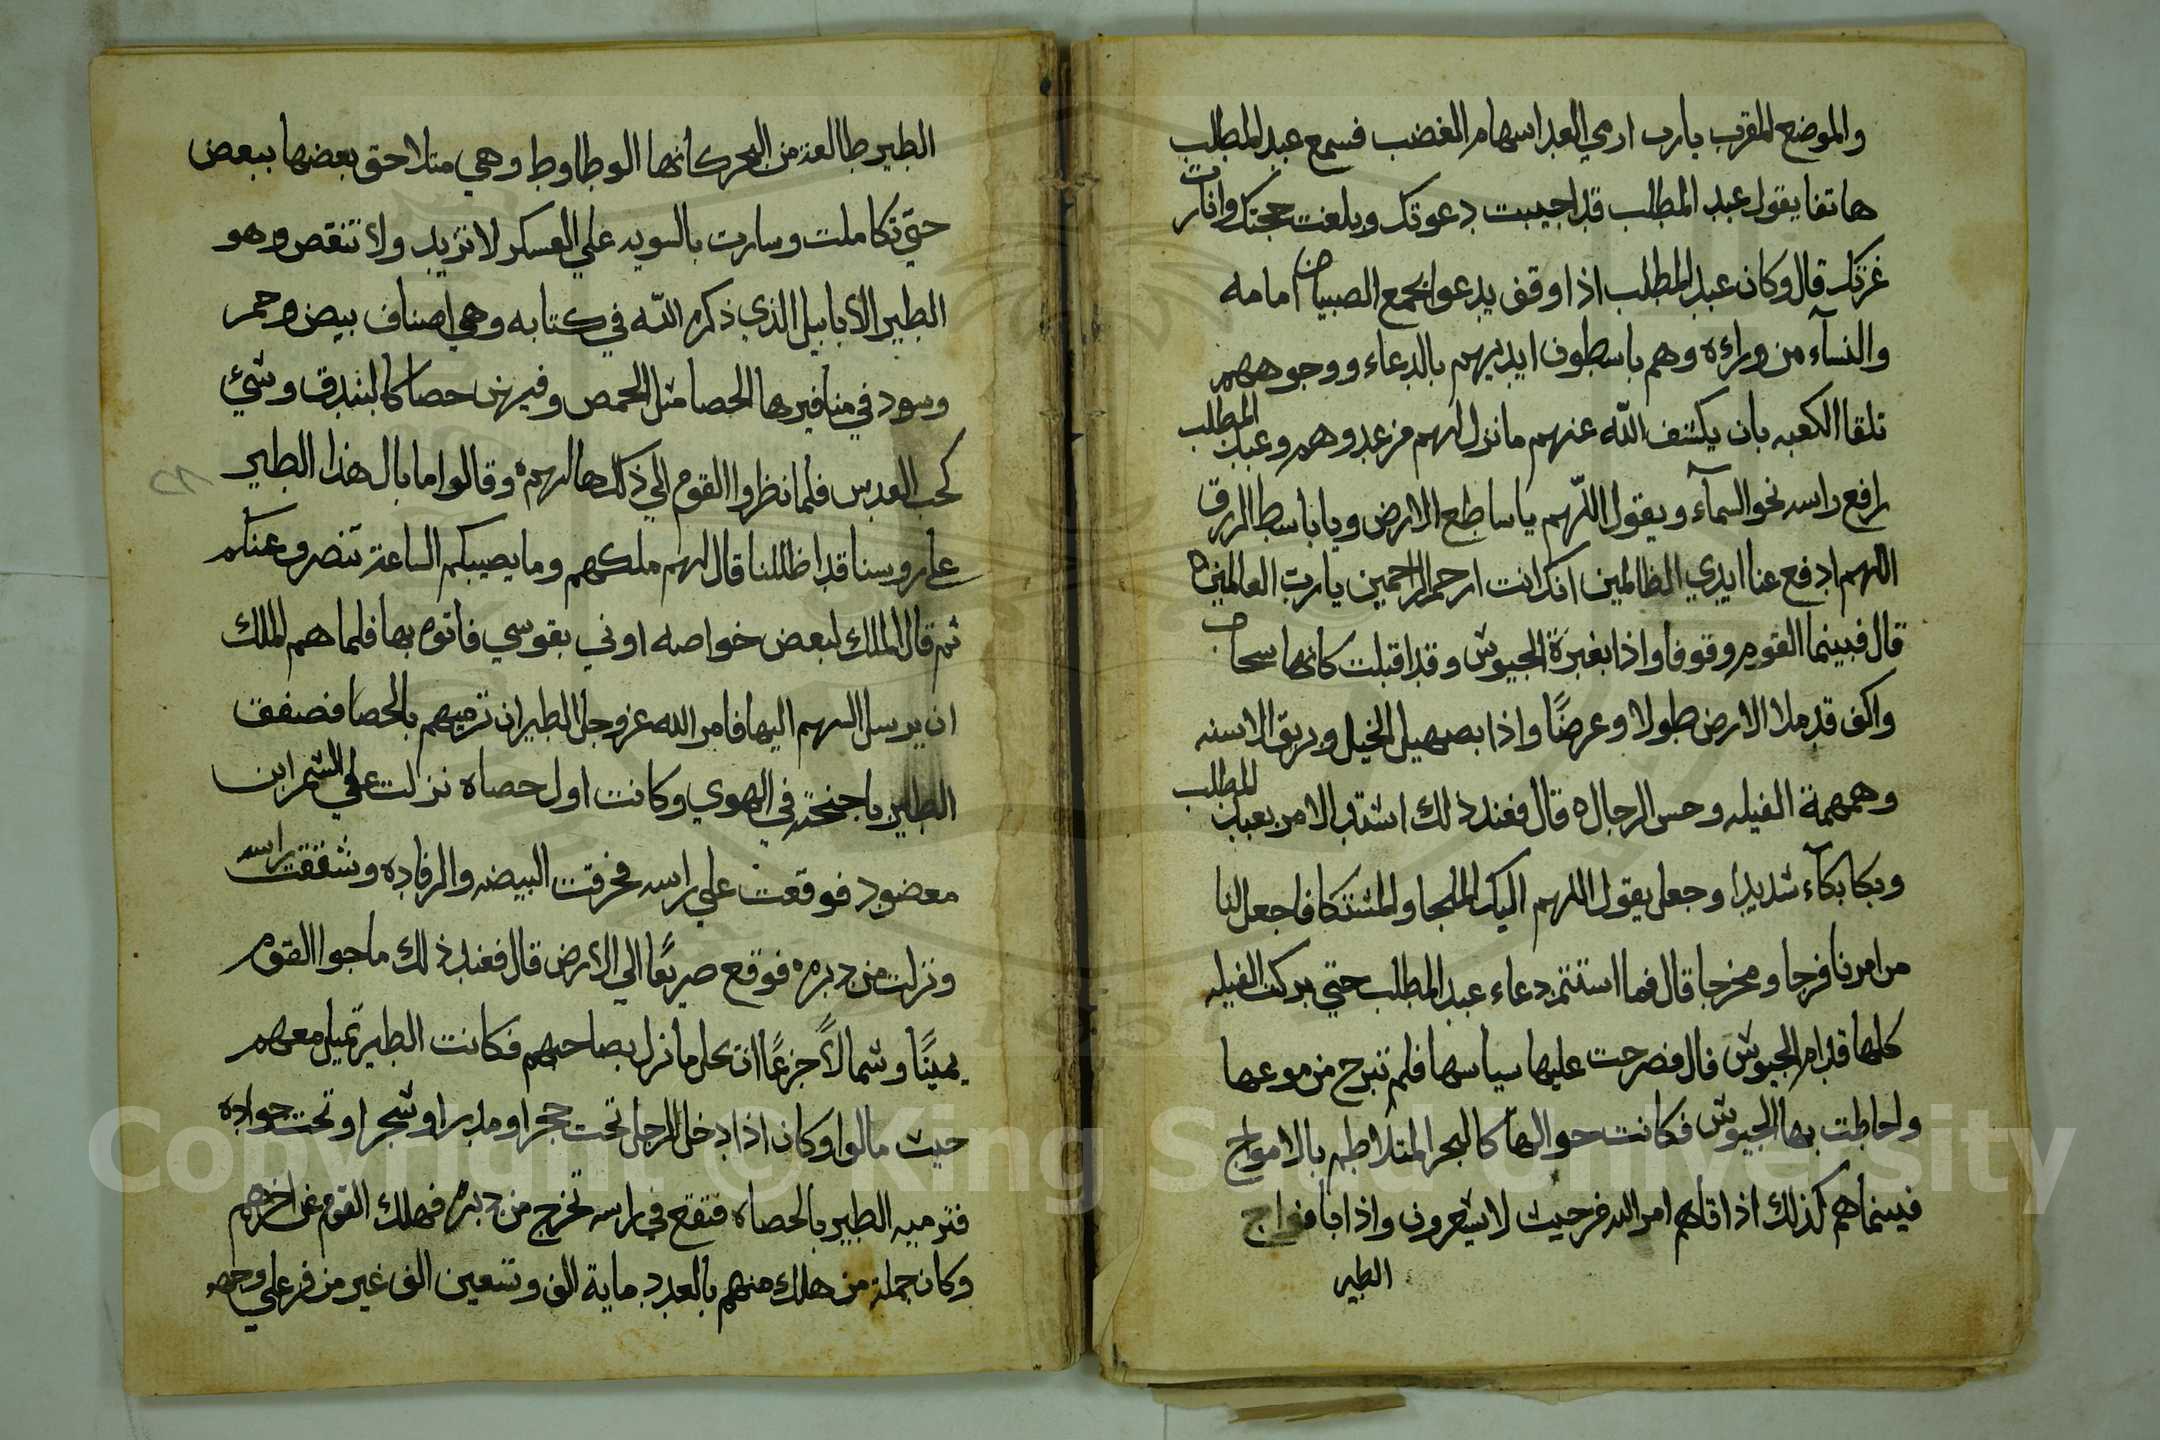 والموضع المقرب يارب ارمي العدا سهام الغضب فسمع عبد المطلب
هاتفا يقول عبد المطلب قد اجيبت دعوتك وبلغت حجتك وانارت
غزتك قال وكان عبد المطلب اذا وقف يدعوا بجمع الصبيان امامه
والنسآء من وراءه وهم باسطون ايديهم بالدعاء ووجوههم
تلقا الكعبه بان يكشف الله عنهم ما نزل لهم من عدوهم وعبد المطلب
رافع راسه نحو السمآء ويقول اللهم يا ساطع الارض ويا باسط الرزق
اللهم ادفع عنا ايدي الظالمين انك انت ارحم الراحمين يارب العالمين ه
قال فبينما القوم وقوفا واذا بغبرة الجيوش وقد اقبلت كانها سحاب
واكف قد ملا الارض طولا وعرضًا واذا بصهيل الخيل وبريق الاسنه
وهمهمة الفيله وحس الرجال ه قال فعند ذلك اشتد الامر بعبد المطلب
وبكا بكآء شديدا وجعل يقول اللهم اليك الملجا والمشتكا فاجعل لنا
من امرنا فرجا ومخرجا قال فما استتم دعاء عبد المطلب حتي بركت الفيله
كلها قدام الجيوش قال فصرخت عليها سياسها فلم تبرح من موعها
واحاطت بها الجيوش فكانت حوالها كالبحر المتلاطم بالامواج
فبينما هم كذلك اذ اتاهم امر الله من حيث لا يشعرون واذا بافواج
الطير
الطير طالعة من البحر كأنها الوطاوط وهي متلاحق بعضها ببعض
حتي تكاملت وسارت بالسويه علي العسكر لا تزيد ولا تنقص وهو
الطير الأبابيل الذي ذكره الله في كتابه وهي اصناف بيض وحمر
وسود في مناقيرها الحصا مثل الحمص وفيهن حصا كالبندق وشئ
كحب العدس فلما نظروا القوم الي ذلك هالهم ه وقالوا ما بال هذا الطير
علي روسنا قد اظللنا قال لهم ملكهم وما يصيبكم الساعة تنصرف عنكم
ثم قال الملك لبعض خواصه اوني بقوسي فأتوه بها فلما هم الملك
ان يرسل السهم اليها فامر الله عز وجل الطير ان ترميهم بالحصا فصفق
الطير باجنحته في الهوي وكانت اول حصاه نزلت علي الشمر ابن
معضود فوقعت علي راسه فخرقت البيضه والرفاده وشققت راسه
ونزلت من دبره فوقع صريعًا الي الأرض قال فعند ذلك ماجوا القوم
يمينًا وشمالاً جزعًا ان يحل ما نزل بصاحبهم فكانت الطير تميل معهم
حيث مالوا وكان اذا دخل الرجل تحت حجرا ومدرا وشجرا وتحت جواده
فترميه الطير بالحصاه فتقع في راسه تخرج من دبره فهلك القوم عن اخرهم
وكان جملة من هلك منهم بالعدد ماية الف وتسعين الف غير من فر علي وجهه